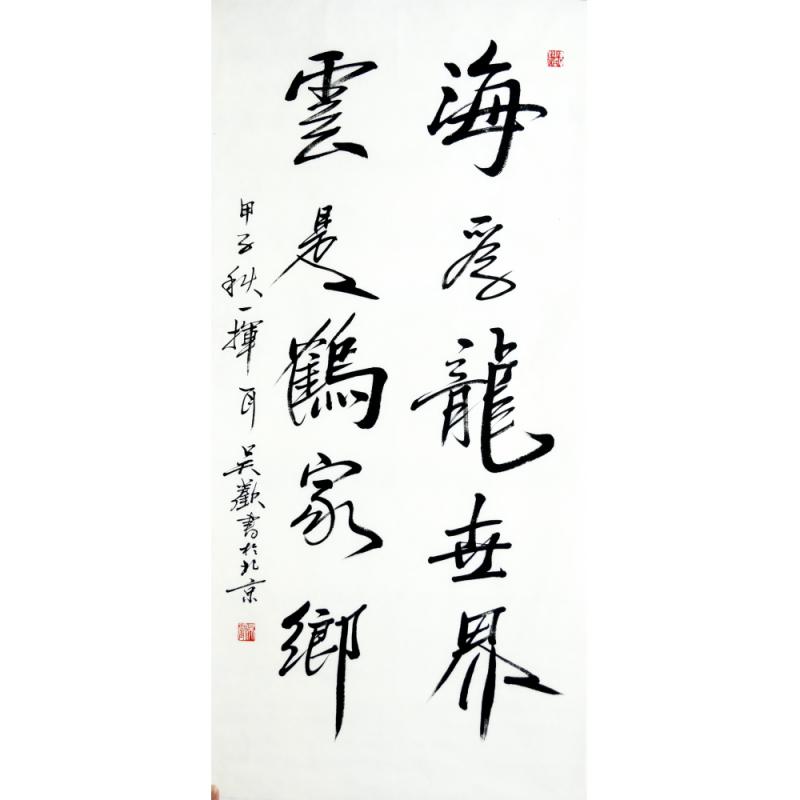 海為龍世界
雲是鶴家鄉
甲子秋一揮耳 吳歡書於北京